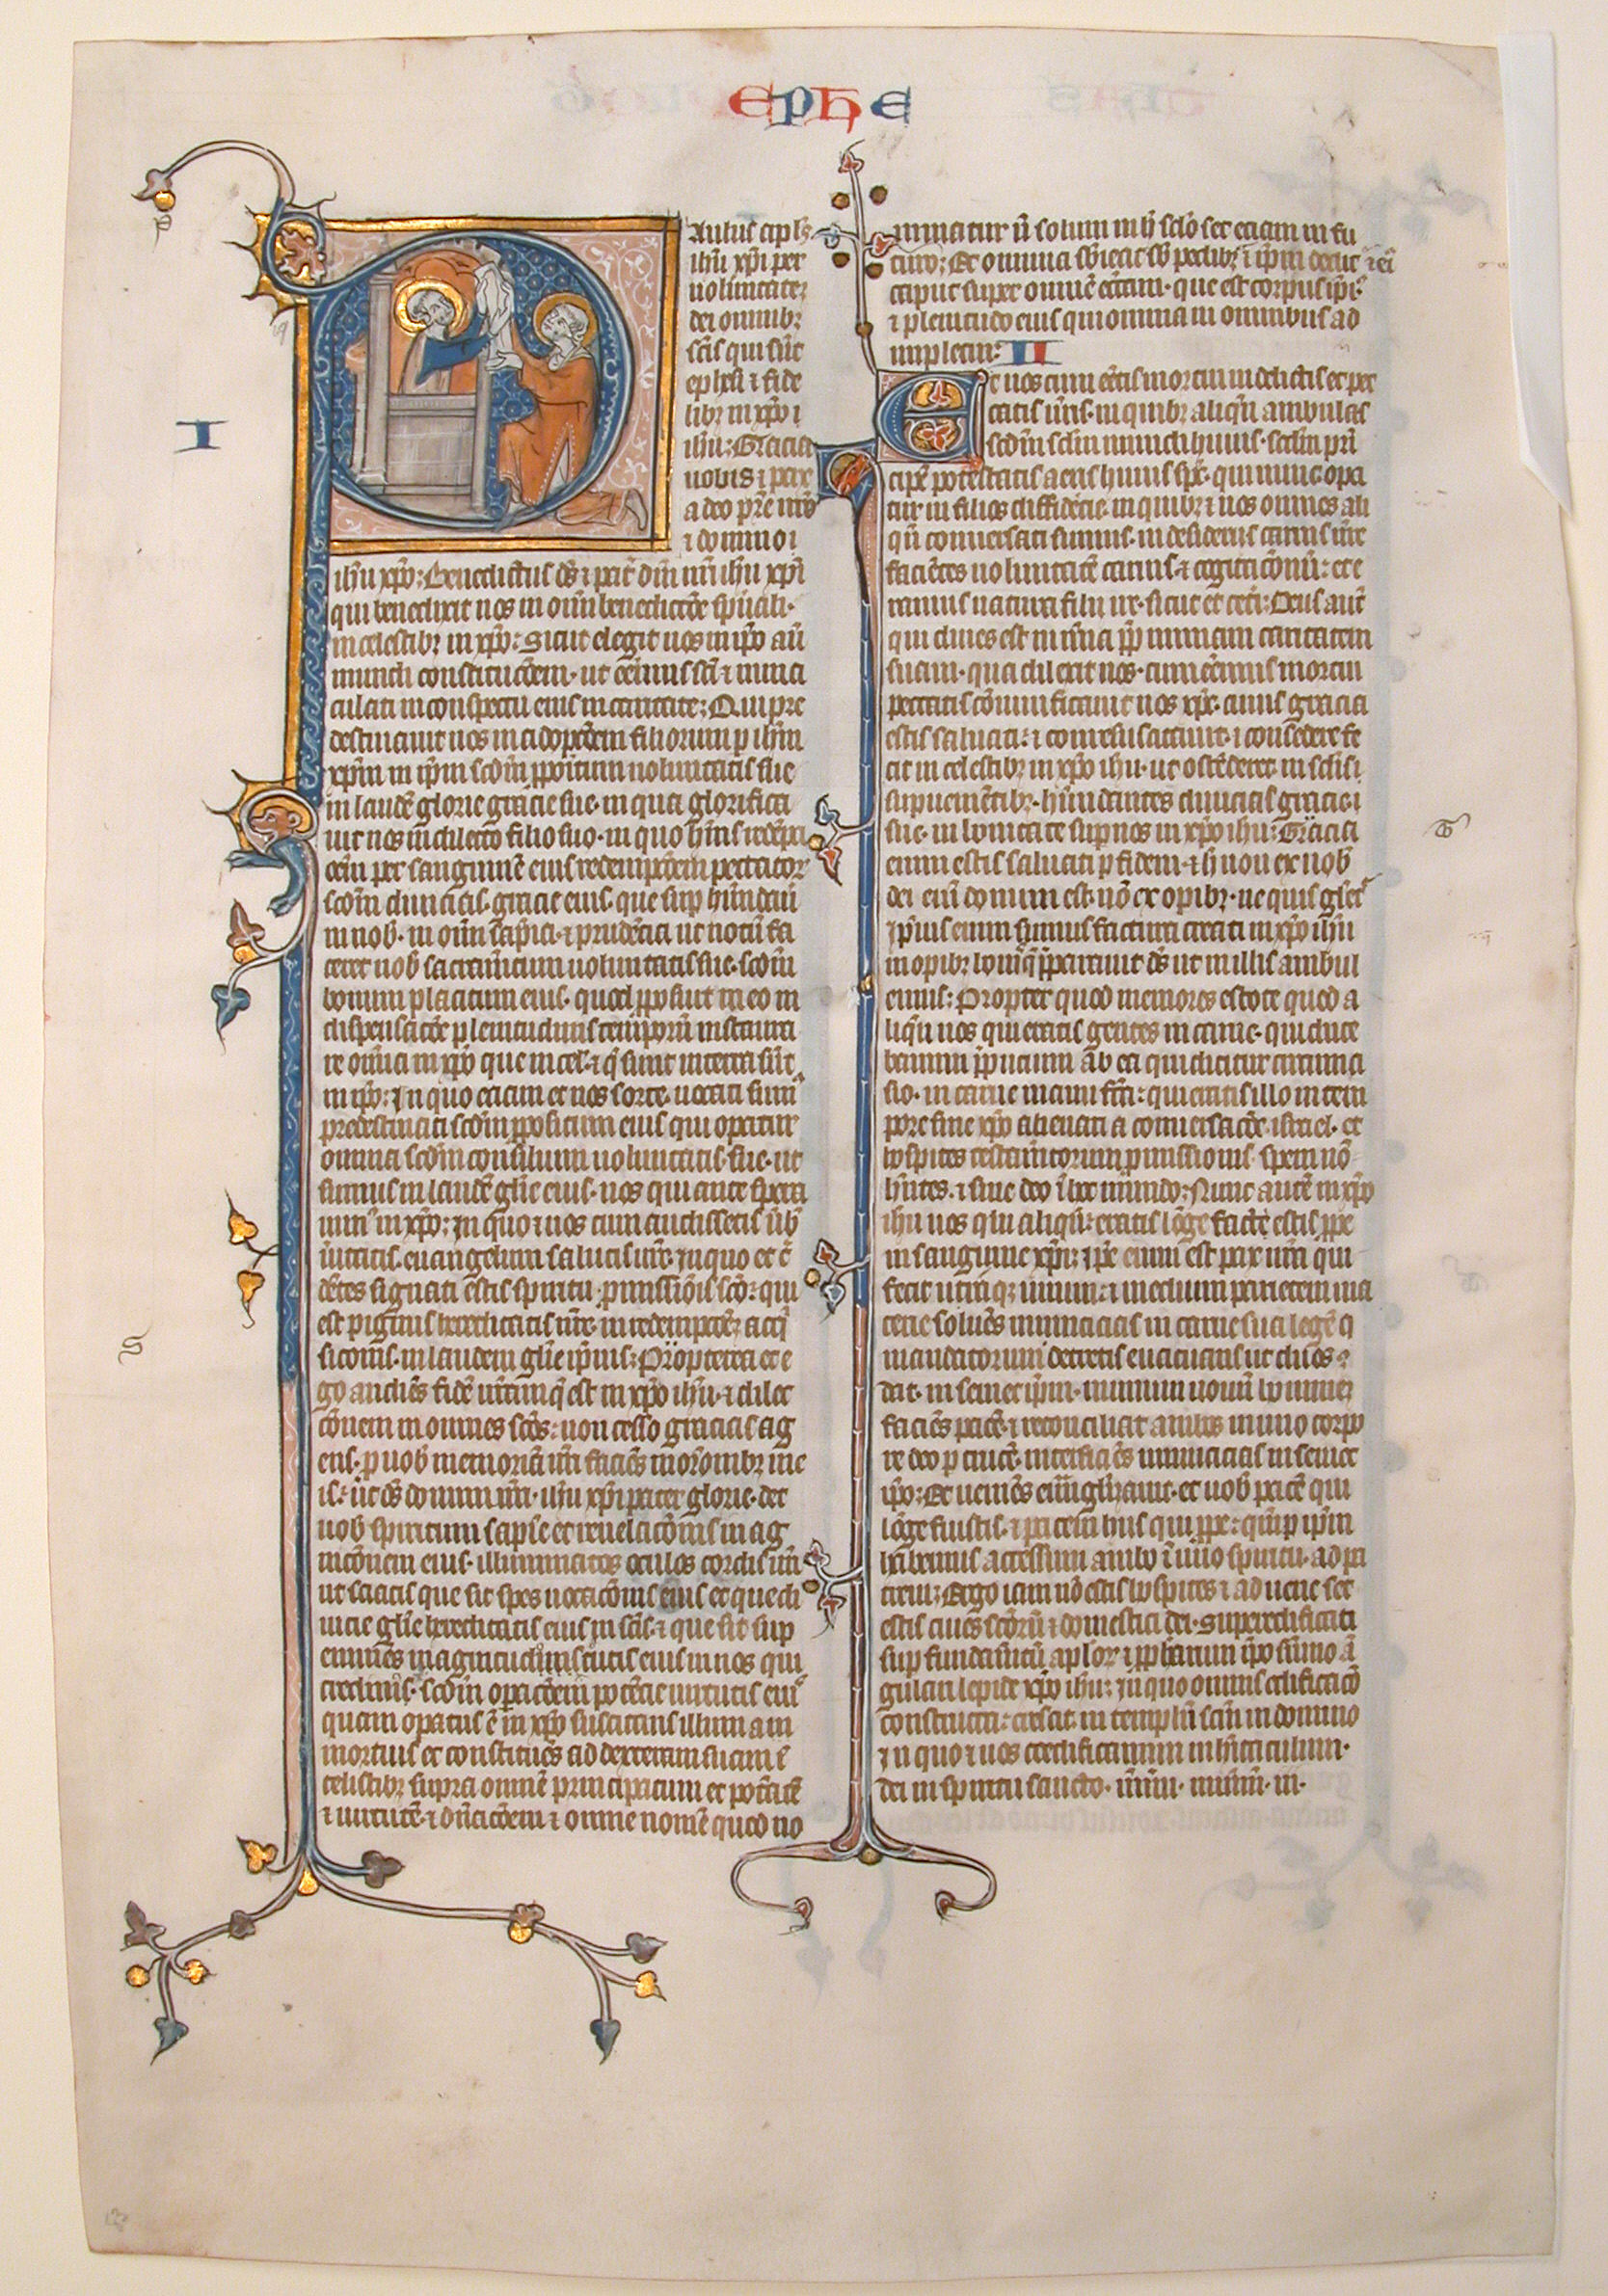 EPHE
I
Paulus apl's
ihū xp̄i per
uoluntatē
dei omnibꝫ
sc̄is qui sūt
ephesi ⁊ fide
libꝫ in xp̄o
ihū: Gracia
uobis ⁊ pax
a deo pr̄e nr̄o
⁊ domino
ihū xp̄o: Benedictus ds̄ ⁊ pat̄ dn̄i nr̄i ihū xp̄i
qui benedixit nos in om̄i benedictōe sp̄uali·
in celestibꝫ in xp̄o: Sicut elegit nos in ip̄o an̄
mundi constitucōem· ut eēmus sc̄i ⁊ inma
culati in conspectu eius in caritate: Qui pre
destinauit nos in adopcōem filiorum p ihm̄
xpm̄ in ip̄m scd̄m ppositum uoluntatis sue
in laudē glorie gracie sue· in qua glorifica
uit nos in dilecto filio suo· in quo hēm̄s redēp
cōem per sanguinē eius redempcōem peccator
scd̄m diuicias gracie eius· que sup habundaui
in nob· in om̄i sapīa ⁊ prudēcia ut notū fa
ceret nob sacram̄tum uoluntatis sue· scd̄m
bonum placitum eius· quod pposuit in eo in
dispensacōe plenitudinis temporū instaura
re om̄ia in xp̄o que in cel' ⁊ q̄ sunt in terra sūt
in ip̄o: In quo eciam et nos sorte uocati sum
predestinati scd̄m ppositum eius qui operatur
omnia scd̄m consilium uoluntatis sue· ut
simus in laudē glīe eius· nos qui ante spera
uim' in xp̄o: In quo ⁊ uos cum audissetis ūb
ūitatis· euangelium salutis ūre· In quo et c̄
dētes signati estis spiritu pmissiōis scō: qui
est pignus hereditatis nr̄e in redempcōeꝫ acq̄
sicōnis· in laudem glīe ip̄ius: Propterea et e
go audiēs fidē ur̄am q̄ est in xp̄o ihū ⁊ dilec
cōnem in omnes scōs: non cesso gracias ag
ens· p uob memoriā ur̄i faciēs in orōnibꝫ me
is: ut ds̄ domini nr̄i ihū xp̄i pater glorie· det
uob spiritum sapīe et reuelacōnis in ag
nicōnem eius· illuminatos oculos cordis ur̄i
ut sciatis que sit spes uocacōnis eius et que di
uicie glīe hereditatis eius in sc̄is ⁊ que sit sup
eminēs magnitudinis ūtutis eius in nos qui
credim̄s· scd̄m operacōem potēcie uirtutis ei'
quam operatus ē in xp̄o suscitans illum a m
mortuis et constituēs ad dexteram suam ē
celestibꝫ supra omnē principatum et potatē
⁊ uirtutē ⁊ dn̄acōem ⁊ omne nomē quod no
minatur n̄ solum in h̄ sclo set eciam in fu
turo: Et omnia sbiecit sb pedibꝫ ⁊ ip̄m dedit
caput super omnē ecc̄am· que est corpus ip̄i'
⁊ plenitudo eius qui omnia in omnibus ad
impletur: II
Et uos cum eētis mortui in delictis et pec
catis ur̄is· in quibꝫ aliqn̄ ambulas
scd̄m sclm̄ mundi huius· scd̄m prī
cipē potestatis aeris huius sp̄c· qui nunc opa
tur in filios diffidēcie· in quibꝫ ⁊ nos omnes ali
qn̄ conuersati sumus· in desideriis carnis nr̄e
faciētes uoluntatē carnis ⁊ cogitacōnū: et e
ramus natura filii ire· sicut et cetī: Deus aut̄
qui diues est in mīa pp nimiam caritatem
suam· qua dilexit nos· cum eēmus mortui
peccatis cōuiuificauit nos xp̄c· cuius gracia
estis saluati: ⁊ conresuscitauit· ⁊ consedere fe
cit in celestibꝫ in xp̄o ihū· ut ostēderet in sclis
supueniētibꝫ· habundantes diuicias gracie
sue· in bonitate sup nos in xp̄o ihū: Gracia
enim estis saluati p fidem ⁊ h̄ non ex uob
dei eni donum est· nō ex opibꝫ· ne quis glet'
Ip̄ius enim sumus factura creati in xp̄o ihū
in opibꝫ bonis q̄ pparauit ds̄ ut in illis ambul
emus: Propter quod memores estote quod a
liqn̄ uos qui eratis gentes in carne· qui dice
bamini p̄pucium ab ea qui dicitur circumci
sio· in carne manu fc̄a: qui eratis illo in tem
pore sine xp̄o alienati a conuersacōe israel· et
hospites testam̄torum pmissionis spem nō
hn̄tes· ⁊ sine deo ī hoc mundo: Nunc autē in xp̄o
ihū uos qui aliqn̄ eratis lōge facti estis ppe
in sanguine xp̄i: ip̄e enim est pax nr̄a qui
fecit utraqꝫ unum: ⁊ medium parietem ma
cerie soluēs inimicicias in carne sua legē
mandatorum decretis euacuans ut duos
dat· in semet ip̄m· in unum nouū hominē
faciēs pacē ⁊ reconciliat ambos in uno corpo
re deo p crucē interficiēs inimicicias in semet
ip̄o: Et ueniēs euūglizauit· et uob pacē qui
lōge fuistis· ⁊ pacem hiis qui ppe: qm̄ p ip̄m
habemus accessum ambo ī uno spiritu· ad pa
trem: Ergo iam nō estis hospites ⁊ aduene set
estis ciues scōrū ⁊ domestici dei· Superedificati
sup fundam̄tū aplor' ⁊ pphetarum ip̄o sūmo ā
gulari lapide xp̄o ihū: In quo omnis edificacō
constructa: crescit in templū scm̄ in domino
In quo ⁊ uos coedificamini in habitaculum·
dei in spiritu sancto·